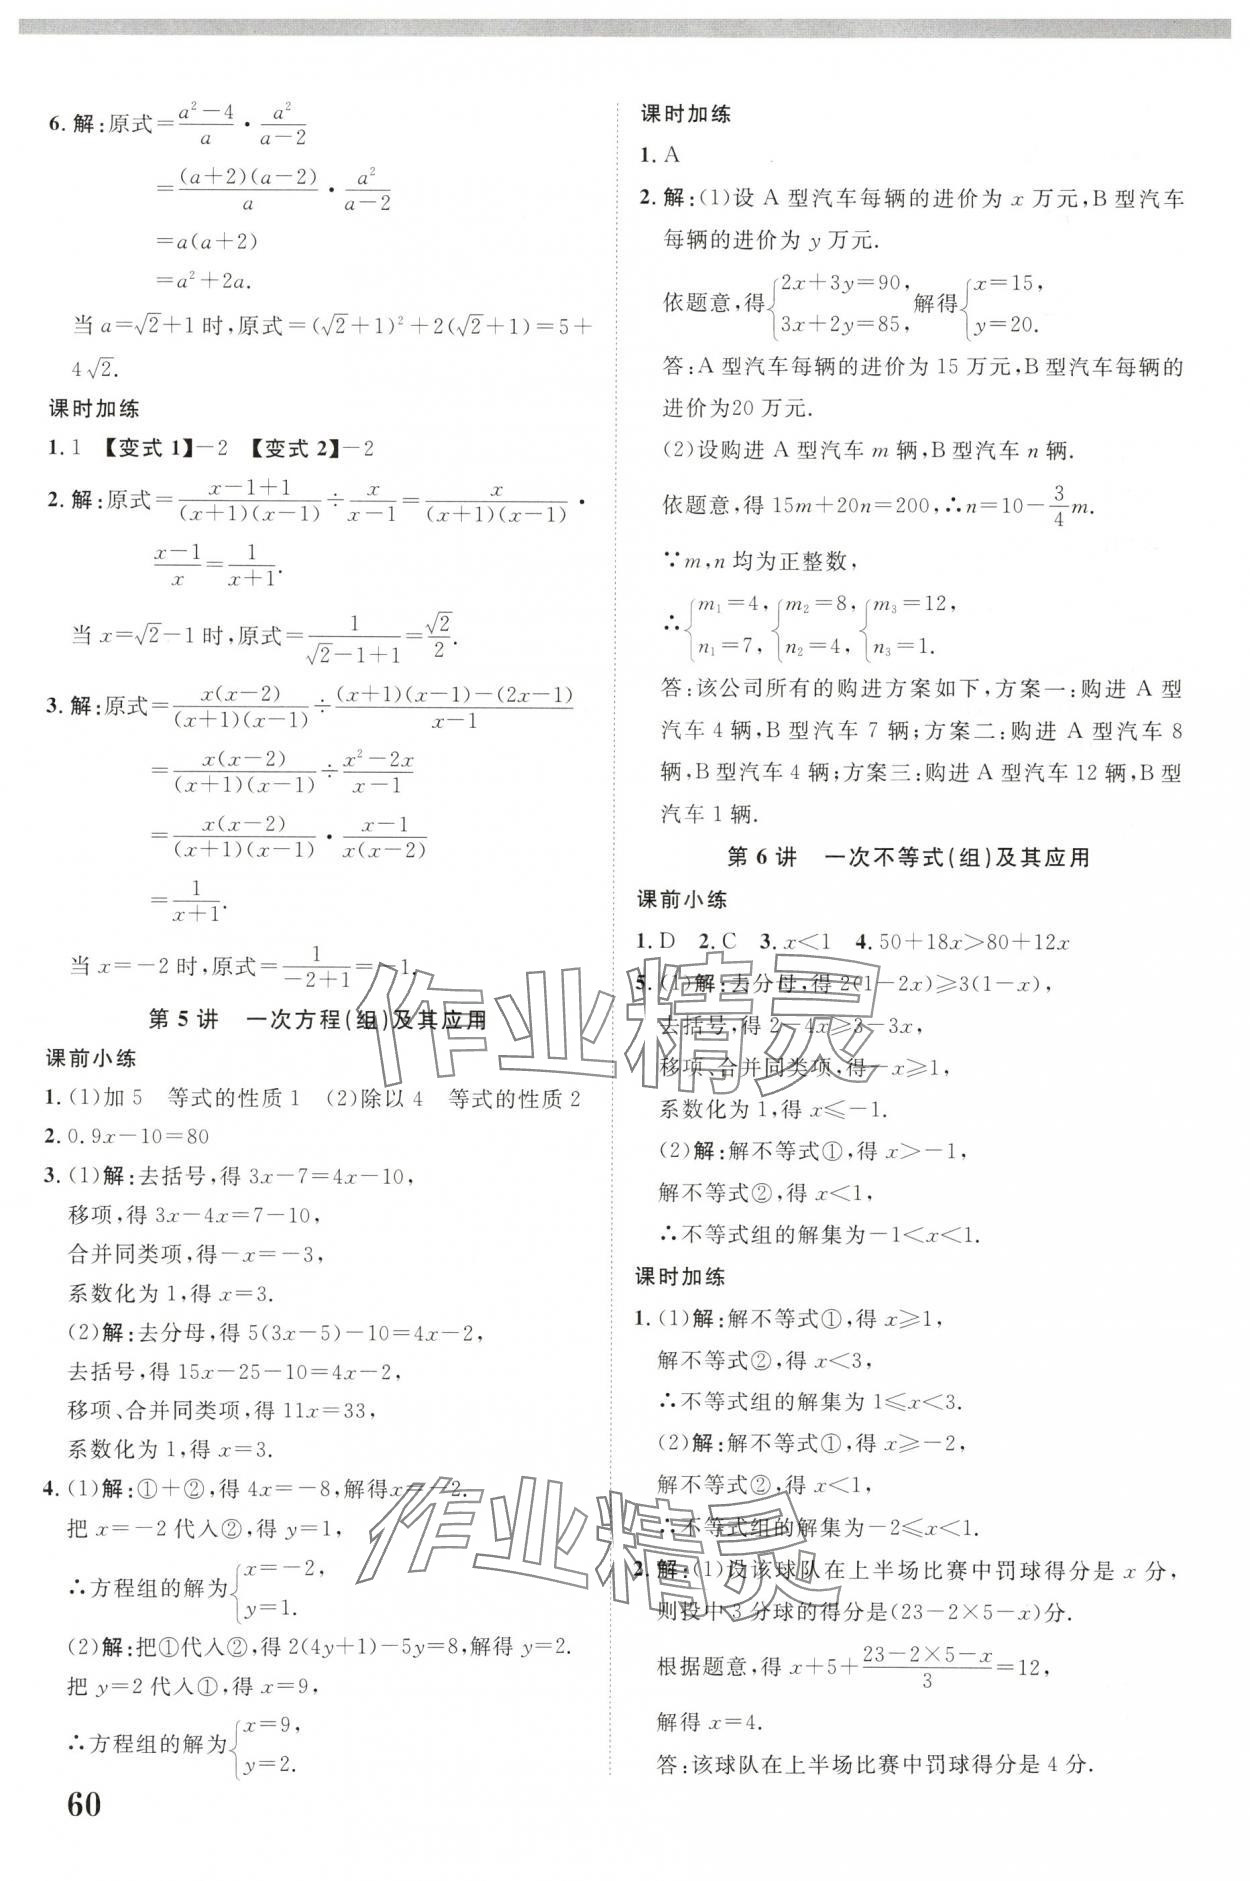 6. 解:原式=\frac{a²-4}{a}·\frac{a²}{a-2}
=\frac{(a+2)(a-2)}{a}·\frac{a²}{a-2}
=a(a+2)
=a²+2a.
当 a=√2+1 时,原式=(√2+1)²+2(√2+1)=5+
4√2.
课时加练
1. 1 【变式 1】-2 【变式 2】-2
2. 解:原式=\frac{x-1+1}{(x+1)(x-1)}÷\frac{x}{x-1}=\frac{x}{(x+1)(x-1)}·
\frac{x-1}{x}=\frac{1}{x+1}.
当 x=√2-1 时,原式=\frac{1}{√2-1+1}=\frac{√2}{2}.
3. 解:原式=\frac{x(x-2)}{(x+1)(x-1)}÷\frac{(x+1)(x-1)-(2x-1)}{x-1}
=\frac{x(x-2)}{(x+1)(x-1)}÷\frac{x²-2x}{x-1}
=\frac{x(x-2)}{(x+1)(x-1)}·\frac{x-1}{x(x-2)}
=\frac{1}{x+1}.
当 x=-2 时,原式=\frac{1}{-2+1}=-1.
第 5 讲 一次方程(组)及其应用
课前小练
1. (1)加 5 等式的性质 1 (2)除以 4 等式的性质 2
2. 0.9x-10=80
3. (1)解:去括号,得 3x-7=4x-10,
移项,得 3x-4x=7-10,
合并同类项,得-x=-3,
系数化为 1,得 x=3.
(2)解:去分母,得 5(3x-5)-10=4x-2,
去括号,得 15x-25-10=4x-2,
移项、合并同类项,得 11x=33,
系数化为 1,得 x=3.
4. (1)解:①+②,得 4x=-8,解得x=-2.
把 x=-2 代入②,得 y=1,
∴方程组的解为{x=-2,
y=1.
(2)解:把①代入②,得 2(4y+1)-5y=8,解得 y=2.
把 y=2 代入①,得 x=9,
∴方程组的解为{x=9,
y=2.
60
课时加练
1. A
2. 解:(1)设 A 型汽车每辆的进价为 x 万元,B 型汽车
每辆的进价为 y 万元.
依题意,得{2x+3y=90, 3x+2y=85,解得{x=15, y=20.
答:A 型汽车每辆的进价为 15 万元,B 型汽车每辆的
进价为20 万元.
(2)设购进 A 型汽车 m 辆,B 型汽车 n 辆.
依题意,得 15m+20n=200,∴n=10-\frac{3}{4}m.
∵m,n 均为正整数,
∴{m₁=4, n₁=7,{m₂=8, n₂=4,{m₃=12, n₃=1.
答:该公司所有的购进方案如下,方案一:购进 A 型
汽车 4 辆,B 型汽车 7 辆;方案二:购进 A 型汽车 8
辆,B 型汽车 4 辆;方案三:购进 A 型汽车 12 辆,B 型
汽车 1 辆.
第 6 讲 一次不等式(组)及其应用
课前小练
1. D 2. C 3. x<1 4. 50+18x>80+12x
5. (1)解:去分母,得 2(1-2x)≥3(1-x),
去括号,得 2-4x≥3-3x,
移项、合并同类项,得-x≥1,
系数化为 1,得 x≤-1.
(2)解:解不等式①,得 x>-1,
解不等式②,得 x<1,
∴不等式组的解集为-1<x<1.
课时加练
1. (1)解:解不等式①,得 x≥1,
解不等式②,得 x<3,
∴不等式组的解集为 1≤x<3.
(2)解:解不等式①,得 x≥-2,
解不等式②,得 x<1,
∴不等式组的解集为-2≤x<1.
2. 解:(1)设该球队在上半场比赛中罚球得分是 x 分,
则投中 3 分球的得分是(23-2×5-x)分.
根据题意,得 x+5+\frac{23-2×5-x}{3}=12,
解得 x=4.
答:该球队在上半场比赛中罚球得分是 4 分.
作业精灵
作业精灵